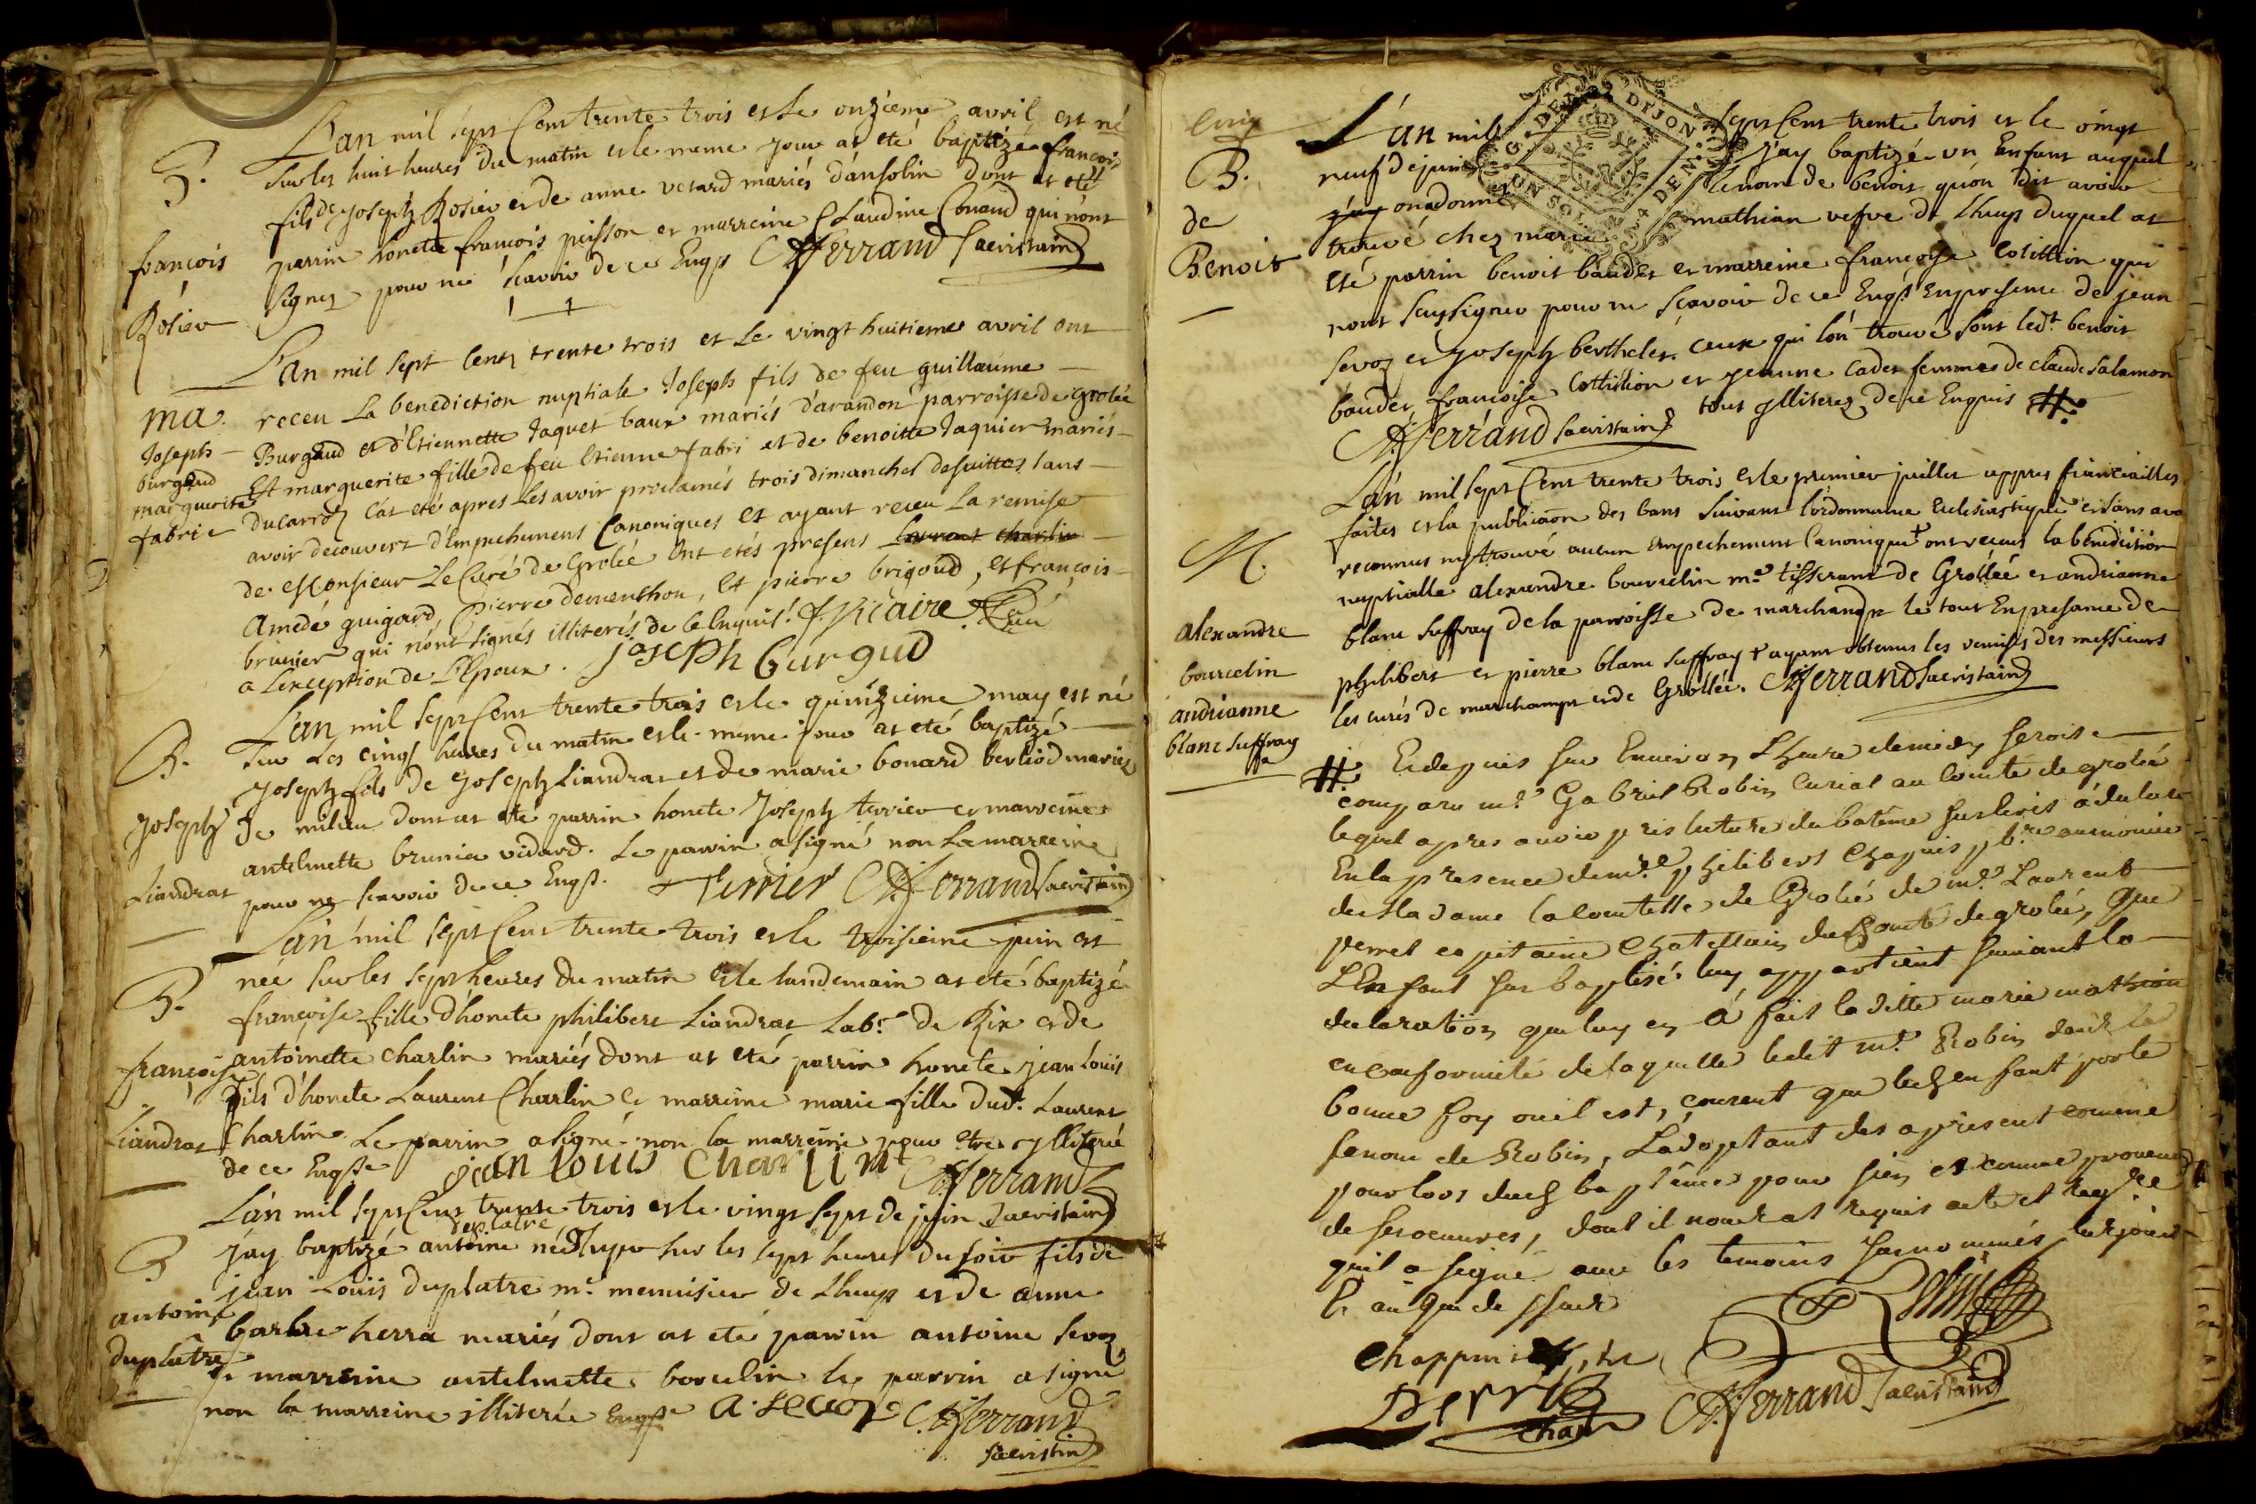 B.
françois
Rosier
L'an mil sept Cent trente trois et le onzieme avril est né
sur les huit heures du matin et le meme jour at eté baptizé françois
fils de joseph Rosier et de anne verard mariés d'ansolin dont at eté
parrin honete françois puisson et marreine Claudine Conand qui n'ont
signez pour ne scavoir de ce Enqs CHferrand Sacristain
ma.
Joseph
burgaud
marguerite
fabri
L'an mil sept Cent trente trois et Le vingt huitieme avril ont
receu La benediction nuptiale Joseph fils de feu guillaume
Burgaud et d'Etiennette Jaquet baux mariés d'arandon parroisse de grolée
Et marguerite fille de feu Etienne fabri et de benoitte Jaquier mariés
ducarroz Cat eté apres Les avoir proclamés trois dimanches desuittes sans
avoir decouvert d'Empechemens Canoniques et ayant receu La remise
de Monsieur Le Curé de Grolée Ont etés presens Laurent charlin
Amedé guigard, Pierre dementhon, Et pierre brigoud, et françois
brunier qui n'ont signés illiterés de Ce Enquis. f. Vicaire
a L'exception de L'Epoux. joseph burgud
B.
Joseph
Liandrat
L'an mil sept Cent trente trois et le quinzieme may est né
sur Les cinq heures du matin et le meme jour at eté baptizé
joseph fils de joseph Liandrat et de marie bonard berliod mariez
de milieu dont at eté parrin honete joseph terrier et marreine
antelmette brunier vidard. Le parrin a signé non La marreine
pour ne scavoir de ce Enqs. Terrier CHferrand Sacristain
B.
françoise
Liandrat
L'an mil sept Cent trente trois et le troisieme juin est
née sur les sept heures du matin et le landemain at eté baptizé
françoise fille d'honete philibert Liandrat Labr. de Rix et de
antoinette charlin mariés dont at eté parrin honete jean Louis
fils d'honete Laurent Charlin et marreine marie fille dudt. Laurent
Charlin. Le parrin a signé non la marreine pour etre illiterée
de ce Enqse jean louis charlin CHferrand
Sacristain
B
antoine
duplatre
L'an mil sept Cent trente trois et le vingt sept de juin
j'ay baptizé antoine duplatre né sur les sept heures du soir fils de
jean Louis duplatre me. menuisier de Lhuys et de anne
barbe herra mariés dont at eté parrin antoine sevoz
et marreine antelmette borcelin le parrin a signé
non la marreine illiterée Enqse A. sevoz CHferrand
Sacristin
cinq
B.
de
Benoit
L'an mil sept Cent trente trois et le vingt
neuf de juin j'ay baptizé un Enfant auquel
j'ay on a donné le nom de benoit qu'on dit avoir
trouvé chez marie mathian vefve de Lhuys duquel at
eté parrin benoit baudet et marreine françoise Cotillion qui
n'ont sçu signer pour ne scavoir de ce Enqs En presence de jean
sevoz et joseph berthelet. ceux qui l'on trouvé sont ledt. benoit
baudet, françoise Cottillion et jeanne Cadet femmes de claude Salamon
tous illiterez de ce Enquis #.
CHferrand Sacristain
M.
alexandre
bourcelin
andrianne
blanc suffray
L'an mil sept Cent trente trois et le premier juillet appres fianciailles
faites et la publicaõn des bans suivant l'ordonnance Eclesiastique et sans avo
reconnus ny trouvé aucun empechement Canonique + ont receus la benediction
nuptialle alexandre bourcelin me. tisserant de Grollée et andrianne
blanc suffray de la parroisse de marchamps le tout En presence de
philibert et pierre blanc suffray + ayant obtenus les remises des messieurs
les curés de marchamps et de Grollée. CHferrand Sacristain
#. Et depuis sur Environ L'heure de midy seroit
comparu mr. Gabriel Robin Curial au Comté de grolée
lequel apres avoir pris lecture du batême sus escris a declaré
En la presence de mre. philibert Chapuis pbre. aumonier
de Madame la Comtesse de Grolée de mr. Laurent
perret capitaine Chatellain du Comté de grolée, Que
L'Enfant sus baptisé luy appartient suivant la
declaration que luy en a fait la ditte marie mathian
en conformité de laquelle ledit mr. Robin dans la
bonne foy ou il est, consent que led. enfant porte
le nom de Robin, L'adoptant des apresent comme
pour lors dud. baptême pour sien et comme provenu
de ses oeuvres, dont il nous at requis acte et
qu'il a signé avec les temoins susnommés, les jour
et an que dessus
Robin
Chappuis, ptre
Perret
Chan
CHferrand Sacristain
G. DE DIJON
UN SOL 4 DEN.